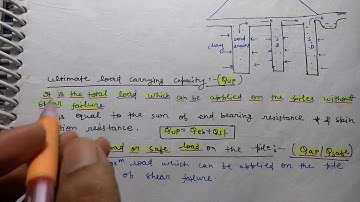 clay
sand drains
S.D
S.D
Ultimate load carrying capacity:- (Qup)
It is the total load which can be applied on the piles without
shear failure
is equal to the sum of end bearing resistance & skin
tion resistance. Qup = Qeb + Qsf
load or safe load on the pile:- (Qap/Qsafe)
xm load which can be applied on the pile
of shear failure.